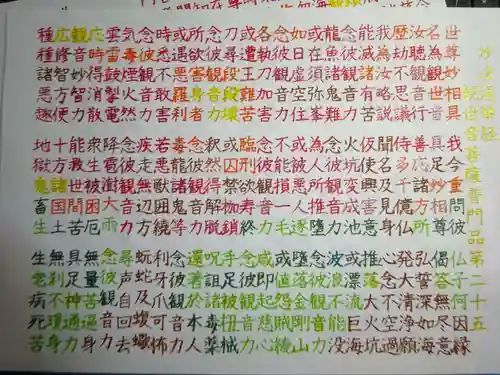 妙法蓮華経
観世音菩薩普門品第二十五
世尊妙相具 我今重問彼 仏子何因縁
名為観世音 具足妙相尊 偈答無尽意
汝聴観音行 善応諸方所 弘誓深如海
歴劫不思議 侍多千億仏 発大清浄願
我為汝略説 聞名及見身 心念不空過
能滅諸有苦 仮使興害意 推落大火坑
念彼観音力 火坑変成池 或漂流巨海
龍魚諸鬼難 念彼観音力 波浪不能没
或在須弥峯 為人所推堕 念彼観音力
如日虚空住 或被悪人逐 堕落金剛山
念彼観音力 不能損一毛 或値怨賊繞
各執刀加害 念彼観音力 咸即起慈心
或遭王難苦 臨刑欲寿終 念彼観音力
刀尋段段壊 或囚禁枷鎖 手足被杻械
念彼観音力 釈然得解脱 呪詛諸毒薬
所欲害身者 念彼観音力 還著於本人
或遇悪羅刹 毒龍諸鬼等 念彼観音力
時悉不敢害 若悪獣囲繞 利牙爪可怖
念彼観音力 疾走無辺方 蚖蛇及蝮蠍
氣毒煙火然 念彼観音力 尋声自回去
雲雷鼓掣電 降雹澍大雨 念彼観音力
応時得消散 衆生被困厄 無量苦逼身
観音妙智力 能救世間苦 具足神通力
広修智方便 十方諸国土 無刹不現身
種種諸悪趣 地獄鬼畜生 生老病死苦